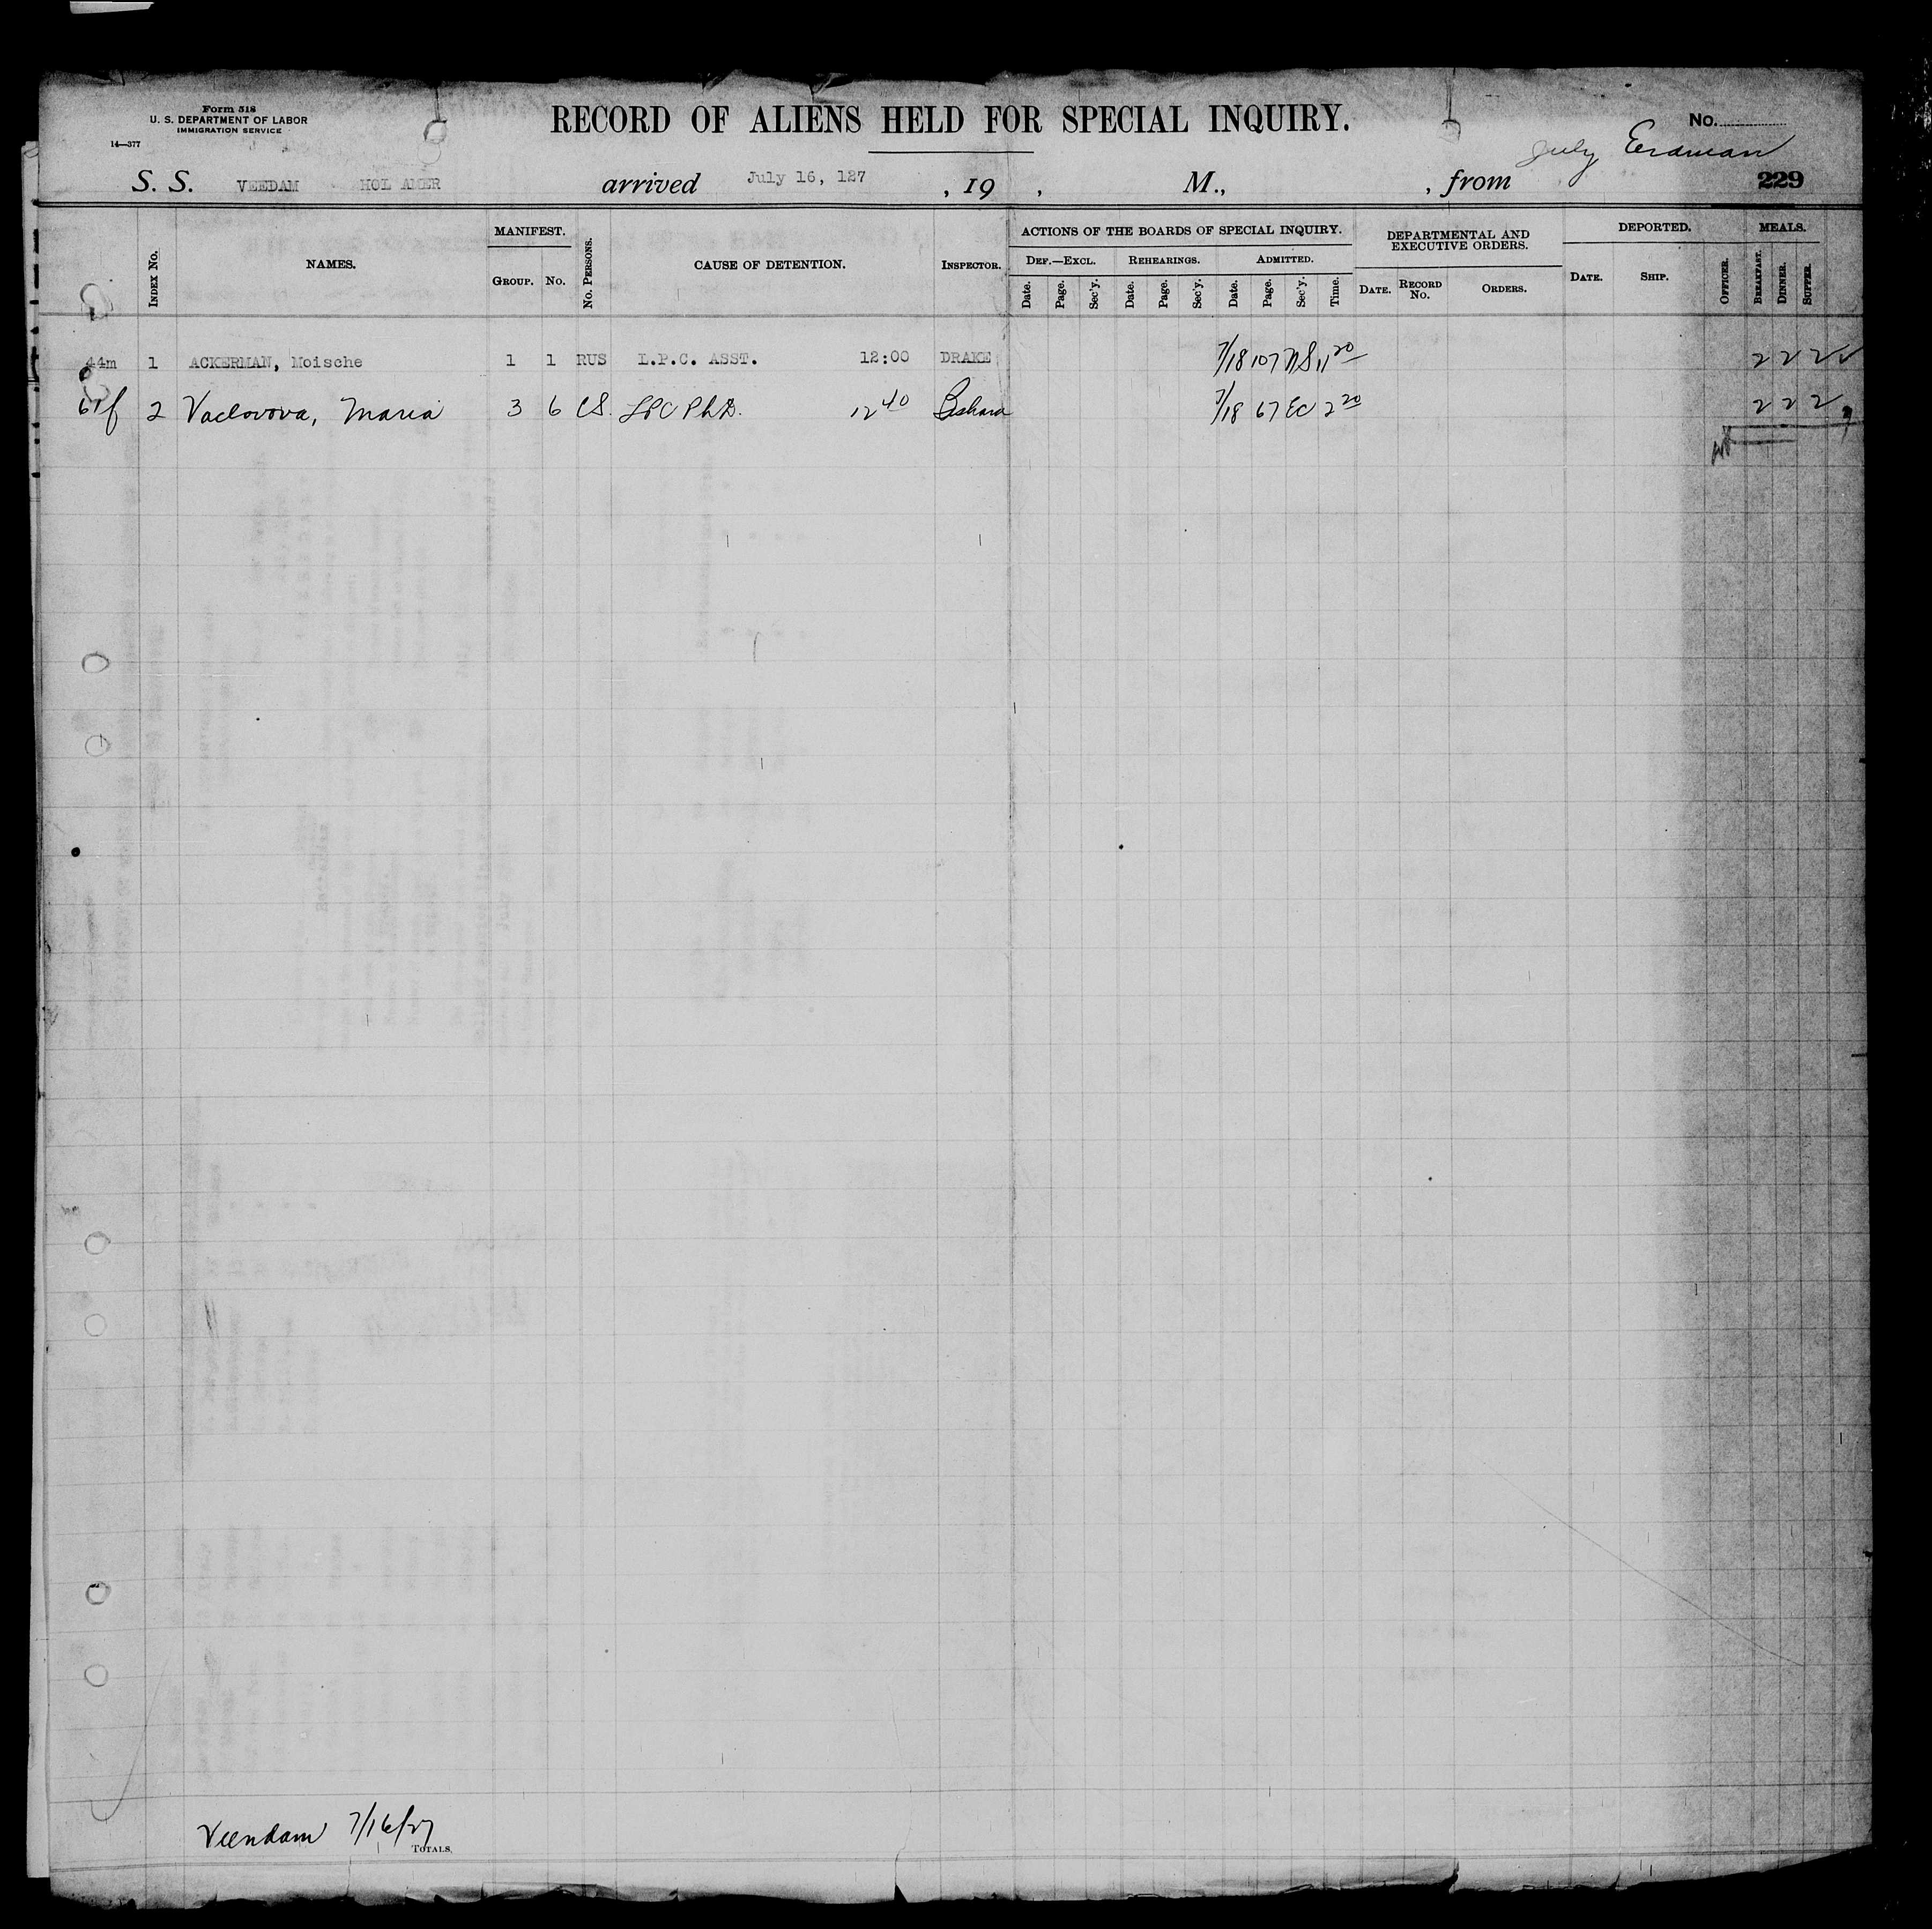 Form 518
U. S. DEPARTMENT OF LABOR
IMMIGRATION SERVICE
14—377
RECORD OF ALIENS HELD FOR SPECIAL INQUIRY.
No.
July Erdman
S. S. VEEDAM HOL AMER arrived July 16, 127 , 19 , M., , from 229
Index No. NAMES. MANIFEST. Group. No. No. Persons. CAUSE OF DETENTION. Inspector. ACTIONS OF THE BOARDS OF SPECIAL INQUIRY. DEPARTMENTAL AND EXECUTIVE ORDERS. DEPORTED. MEALS.
Def.—Excl. Rehearings. Admitted.
Date. Page. Sec'y. Date. Page. Sec'y. Date. Page. Sec'y. Time. Date. Record No. Orders. Date. Ship. Officer. Breakfast. Dinner. Supper.
44m 1 ACKERMAN, Moische 1 1 RUS L.P.C. ASST. 12:00 DRAKE 7/18 107 NS 11 20 2 2 2
2 Vaclovova, Maria 3 6 CS. LPC Ph.D. 12 40 7/18 67 EC 2 20 2 2 2
Veendam 7/16/27
Totals,